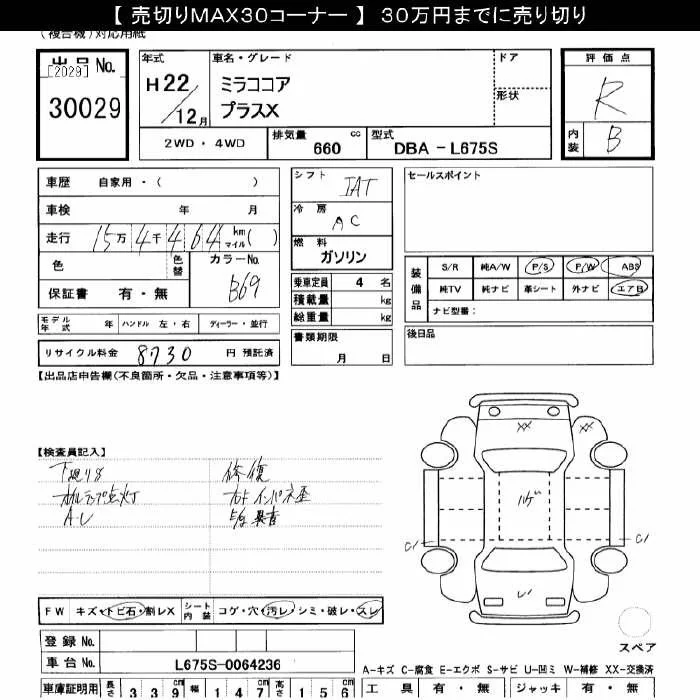 【 売切りMAX30コーナー 】 30万円までに売り切り
(複合機)対応用紙
出品 No.
[2029]
30029
年式
H22/12月
車名・グレード
ミラココア
プラスX
ドア
形状
評価点
R
内装
B
2WD ・ 4WD
排気量 cc
660
型式
DBA - L675S
車歴 自家用・( )
車検 年 月
走行 15万 4千 4 64 km マイル ( )
色 色替 カラーNo.
B69
保証書 有・無
シフト
IAT
冷房
AC
燃料
ガソリン
乗車定員 4 名
積載量 kg
総重量 kg
書類期限
月 日
セールスポイント
装備品
S/R 純A/W P/S P/W ABS
純TV 純ナビ 革シート 外ナビ エアB
ナビ型番:
後日品
モデル年式 年 ハンドル 左・右 ディーラー・並行
リサイクル料金 8730 円 預託済
【出品店申告欄(不良箇所・欠品・注意事項等)】
【検査員記入】
下廻りS 修復
オイルランプ点灯
A-U 異音
XX XX
ハゲ
C1 C1
FW キズ・トビ石・割レX シート内装 コゲ・穴・汚レ・シミ・破レ・スレ
登録 No.
車台 No. L675S-0064236
スペア
A-キズ C-腐食 E-エクボ S-サビ U-凹ミ W-補修 XX-交換済
車庫証明用 長さ 3 3 9 cm 幅 1 4 7 cm 高さ 1 5 6 cm
工具 有・無 ジャッキ 有・無